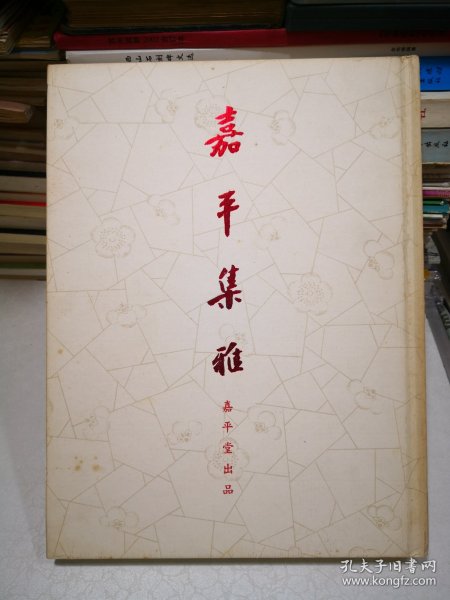 嘉平集雅
嘉平堂出品
孔夫子旧书网
www.kongfz.com